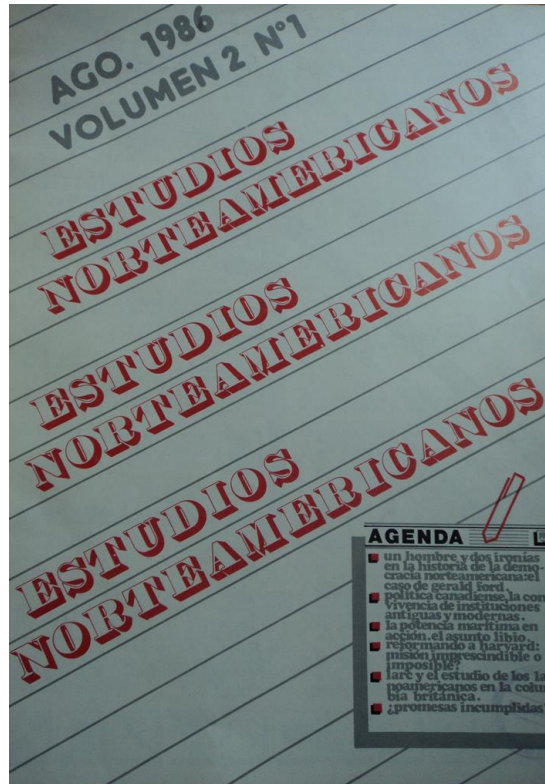 AGO. 1986
VOLUMEN 2 N°1
ESTUDIOS
NORTEAMERICANOS
ESTUDIOS
NORTEAMERICANOS
ESTUDIOS
NORTEAMERICANOS
AGENDA
un hombre y dos ironías
en la historia de la demo-
cracia norteamericana:el
caso de gerald ford.
política canadiense,la con
vivencia de instituciones
antiguas y modernas.
la potencia marítima en
acción.el asunto libio.
reformando a harvard:
misión imprescindible o
imposible?
y el estudio de los la
noamericanos en la colu
bia británica.
¿promesas incumplidas